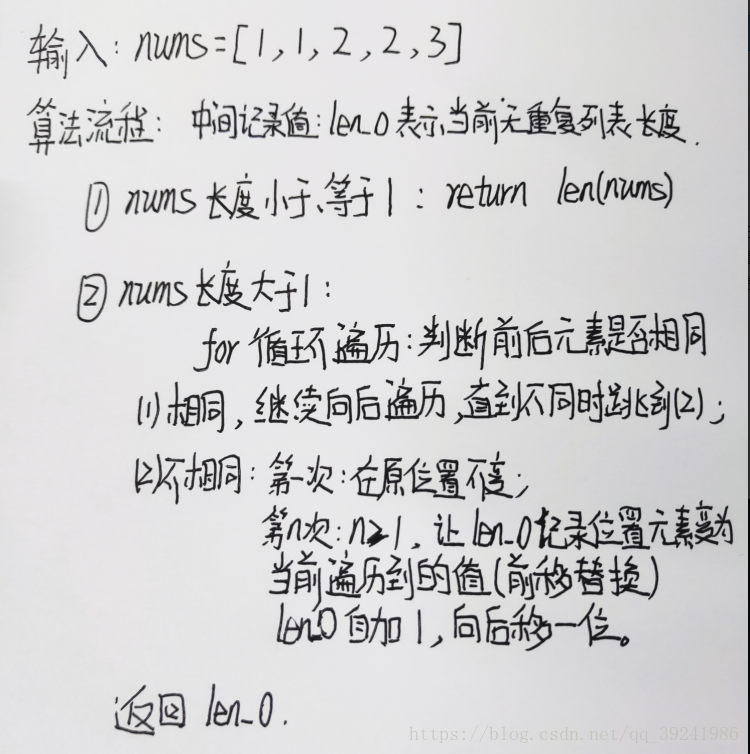 输入: nums=[1,1,2,2,3]
算法流程: 中间记录值: len_0 表示当前无重复列表长度.
① nums 长度小于、等于1: return len(nums)
② nums 长度大于1:
for 循环遍历: 判断前后元素是否相同
(1)相同, 继续向后遍历, 直到不同时跳到(2);
(2)不相同: 第一次: 在原位置不变;
第n次: n≥1, 让len_0记录位置元素变为
当前遍历到的值(前移替换)
len_0自加1, 向后移一位。
返回 len_0.
https://blog.csdn.net/qq_39241986